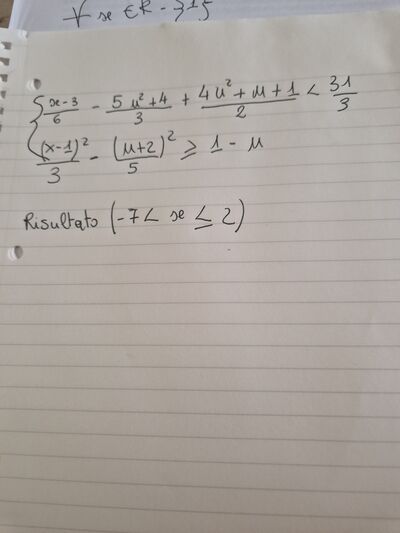 ∀ x ∈ R -
{ (x-3)/6 - (5x²+4)/3 + (4x²+x+1)/2 < 31/3
(x-1)²/3 - (x+2)²/5 ≥ 1 - x
Risultato (-7 < x ≤ 2)